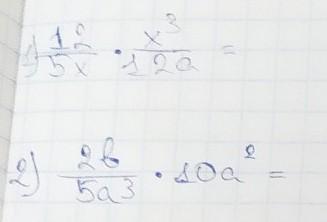 1) 12/5x · x³/12a =
2) 2b/5a³ · 10a² =